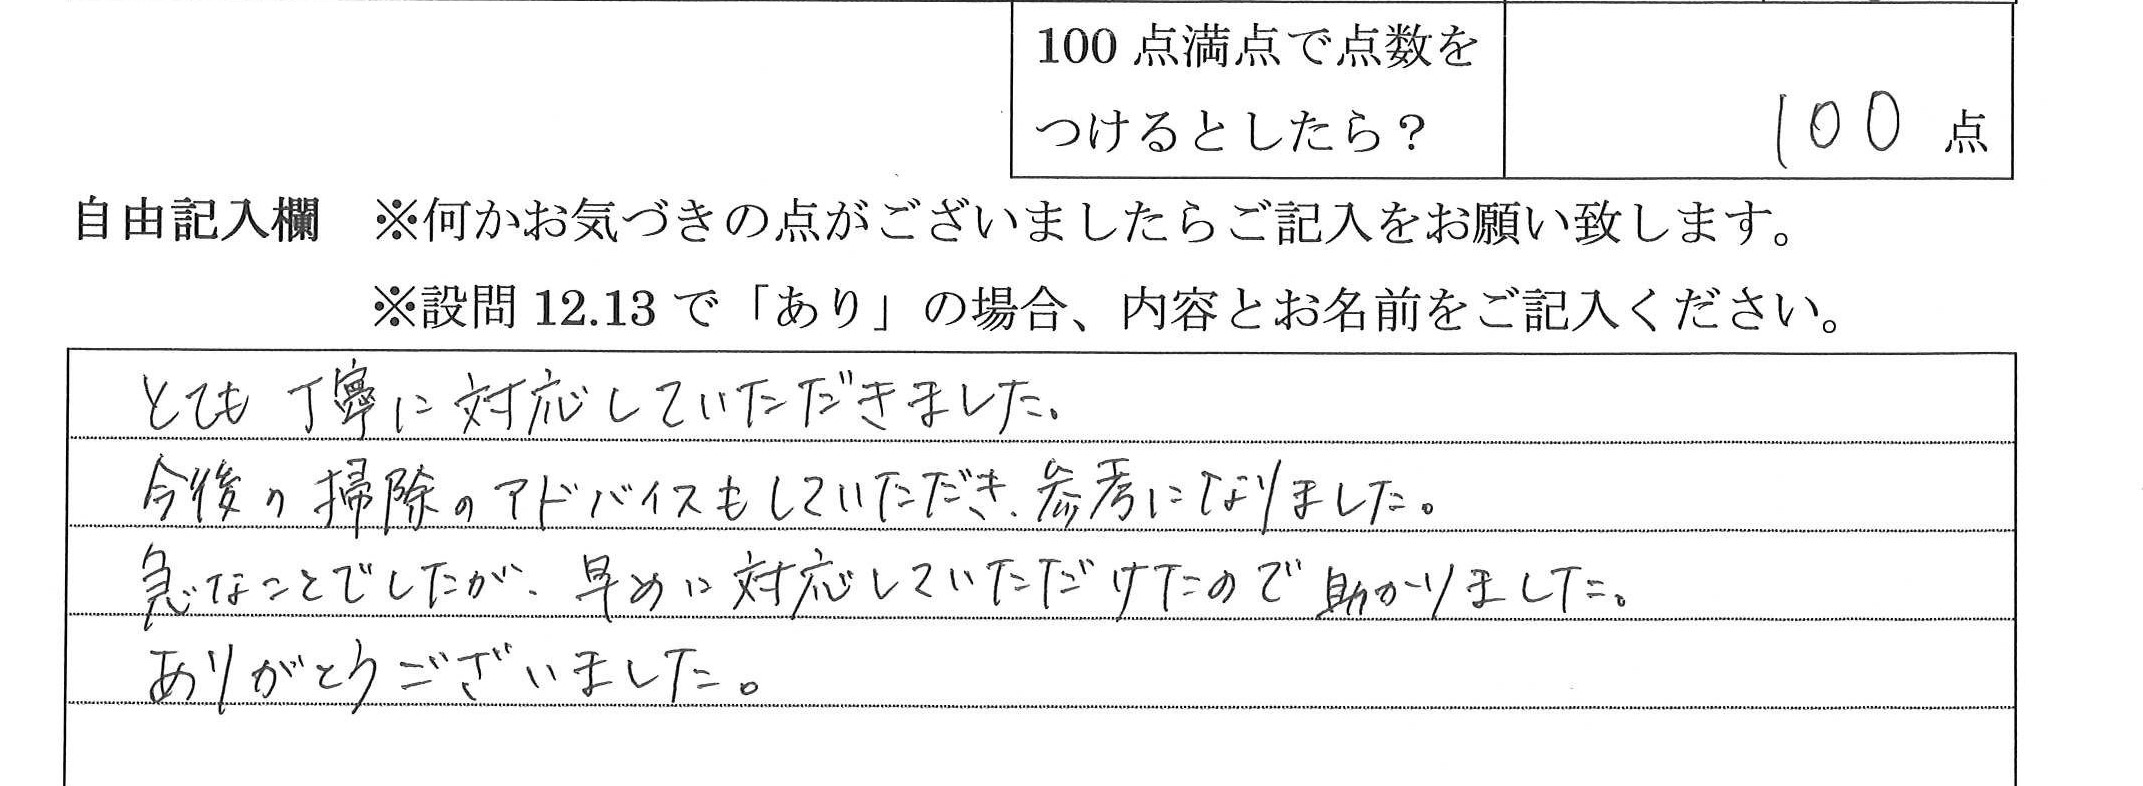 100 点満点で点数を
つけるとしたら？
100 点
自由記入欄　※何かお気づきの点がございましたらご記入をお願い致します。
※設問 12.13 で「あり」の場合、内容とお名前をご記入ください。
とても丁寧に対応していただきました。
今後の掃除のアドバイスもしていただき、参考になりました。
急なことでしたが、早めに対応していただけたので助かりました。
ありがとうございました。